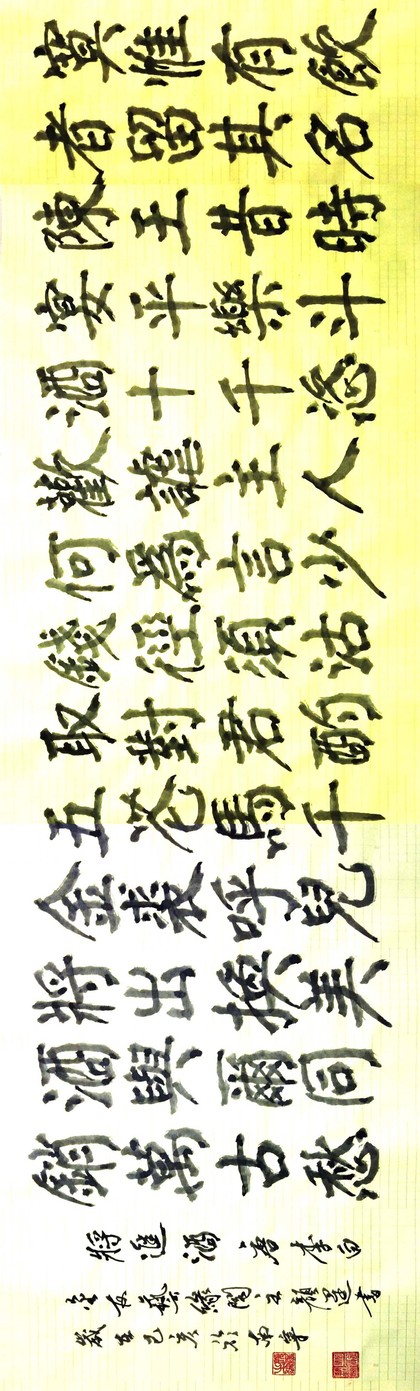 寞惟有飲
者留其名
陳王昔時
宴平樂斗
酒十千恣
歡謔主人
何為言少
錢徑須沽
取對君酌
五花馬千
金裘呼兒
將出換美
酒與爾同
銷萬古愁
將進酒唐李白
藝緣閣書
歲在己亥於南寧